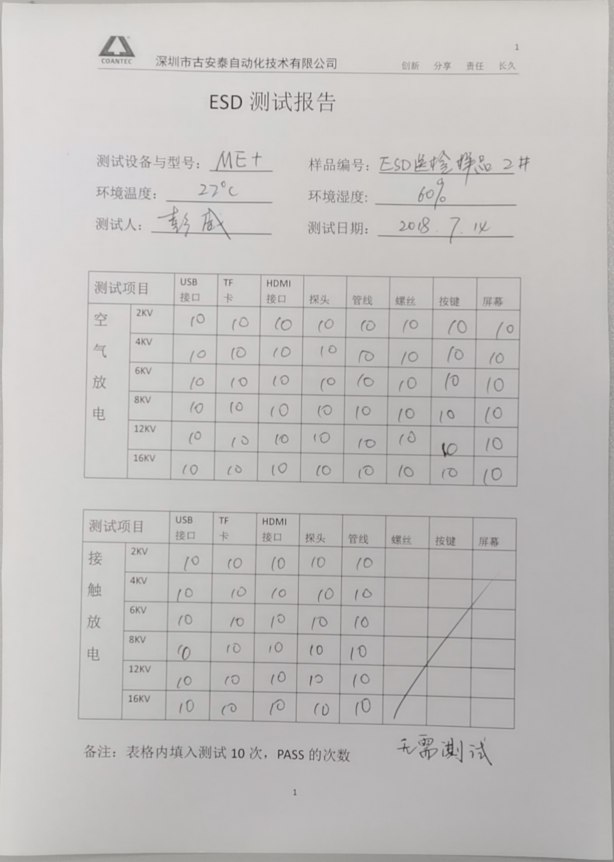 1
COANTEC 深圳市古安泰自动化技术有限公司 创新 分享 责任 长久
ESD 测试报告
测试设备与型号: ME+ 样品编号: ESD送检样品 2#
环境温度: 27℃ 环境湿度: 60%
测试人: 彭威 测试日期: 2018.7.14
测试项目 USB接口 TF卡 HDMI接口 探头 管线 螺丝 按键 屏幕
空气放电
2KV 10 10 10 10 10 10 10 10
4KV 10 10 10 10 10 10 10 10
6KV 10 10 10 10 10 10 10 10
8KV 10 10 10 10 10 10 10 10
12KV 10 10 10 10 10 10 10 10
16KV 10 10 10 10 10 10 10 10
测试项目 USB接口 TF卡 HDMI接口 探头 管线 螺丝 按键 屏幕
接触放电
2KV 10 10 10 10 10
4KV 10 10 10 10 10
6KV 10 10 10 10 10
8KV 10 10 10 10 10
12KV 10 10 10 10 10
16KV 10 10 10 10 10
备注: 表格内填入测试 10 次，PASS 的次数 无需测试
1